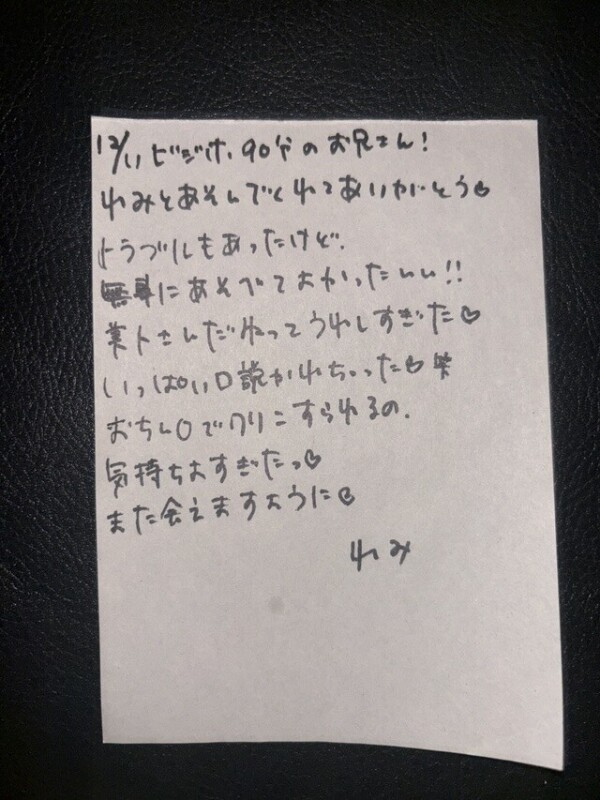 12/11 ビジホ、90分のお兄さん!
れみとあそんでくれてありがとう♡
トラブルもあったけど、
無事にあそべてよかったしぃ!!
美人さんだねってうれしすぎた♡
いっぱい口説かれちゃった♡笑
おちん〇でクリこすられるの、
気持ちよすぎたっ♡
また会えますように♡
れみ